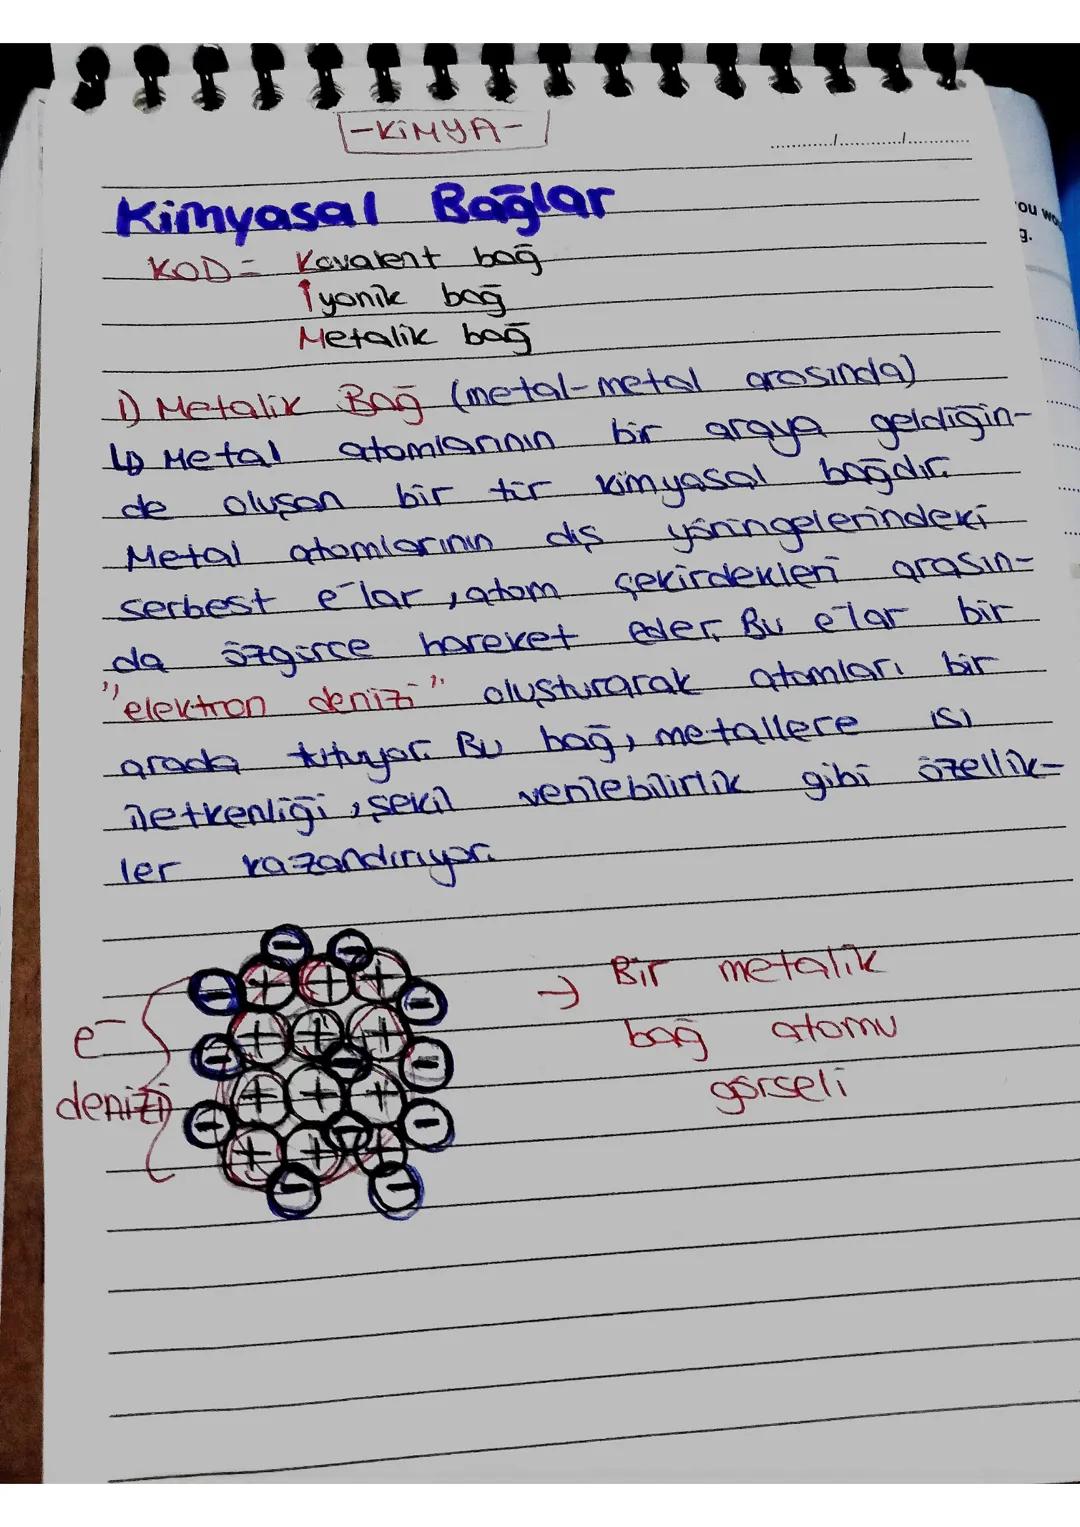 -KİMYA-
........./........../..........
Kimyasal Bağlar
KOD = Kovalent bağ
İyonik bağ
Metalik bağ
1) Metalik Bağ (metal-metal arasında)
↳ Metal atomlarının bir araya geldiğin-
de oluşan bir tür kimyasal bağdır.
Metal atomlarının dış yörüngelerindeki
serbest e⁻lar, atom çekirdekleri arasın-
da özgürce hareket eder. Bu e⁻lar bir
"elektron denizi" oluşturarak atomları bir
arada tutuyor. Bu bağ, metallere ısı
iletkenliği, şekil verilebilirlik gibi özellik-
ler kazandırıyor.
e⁻
denizi
→ Bir metalik
bağ atomu
görseli
ou wo
g.